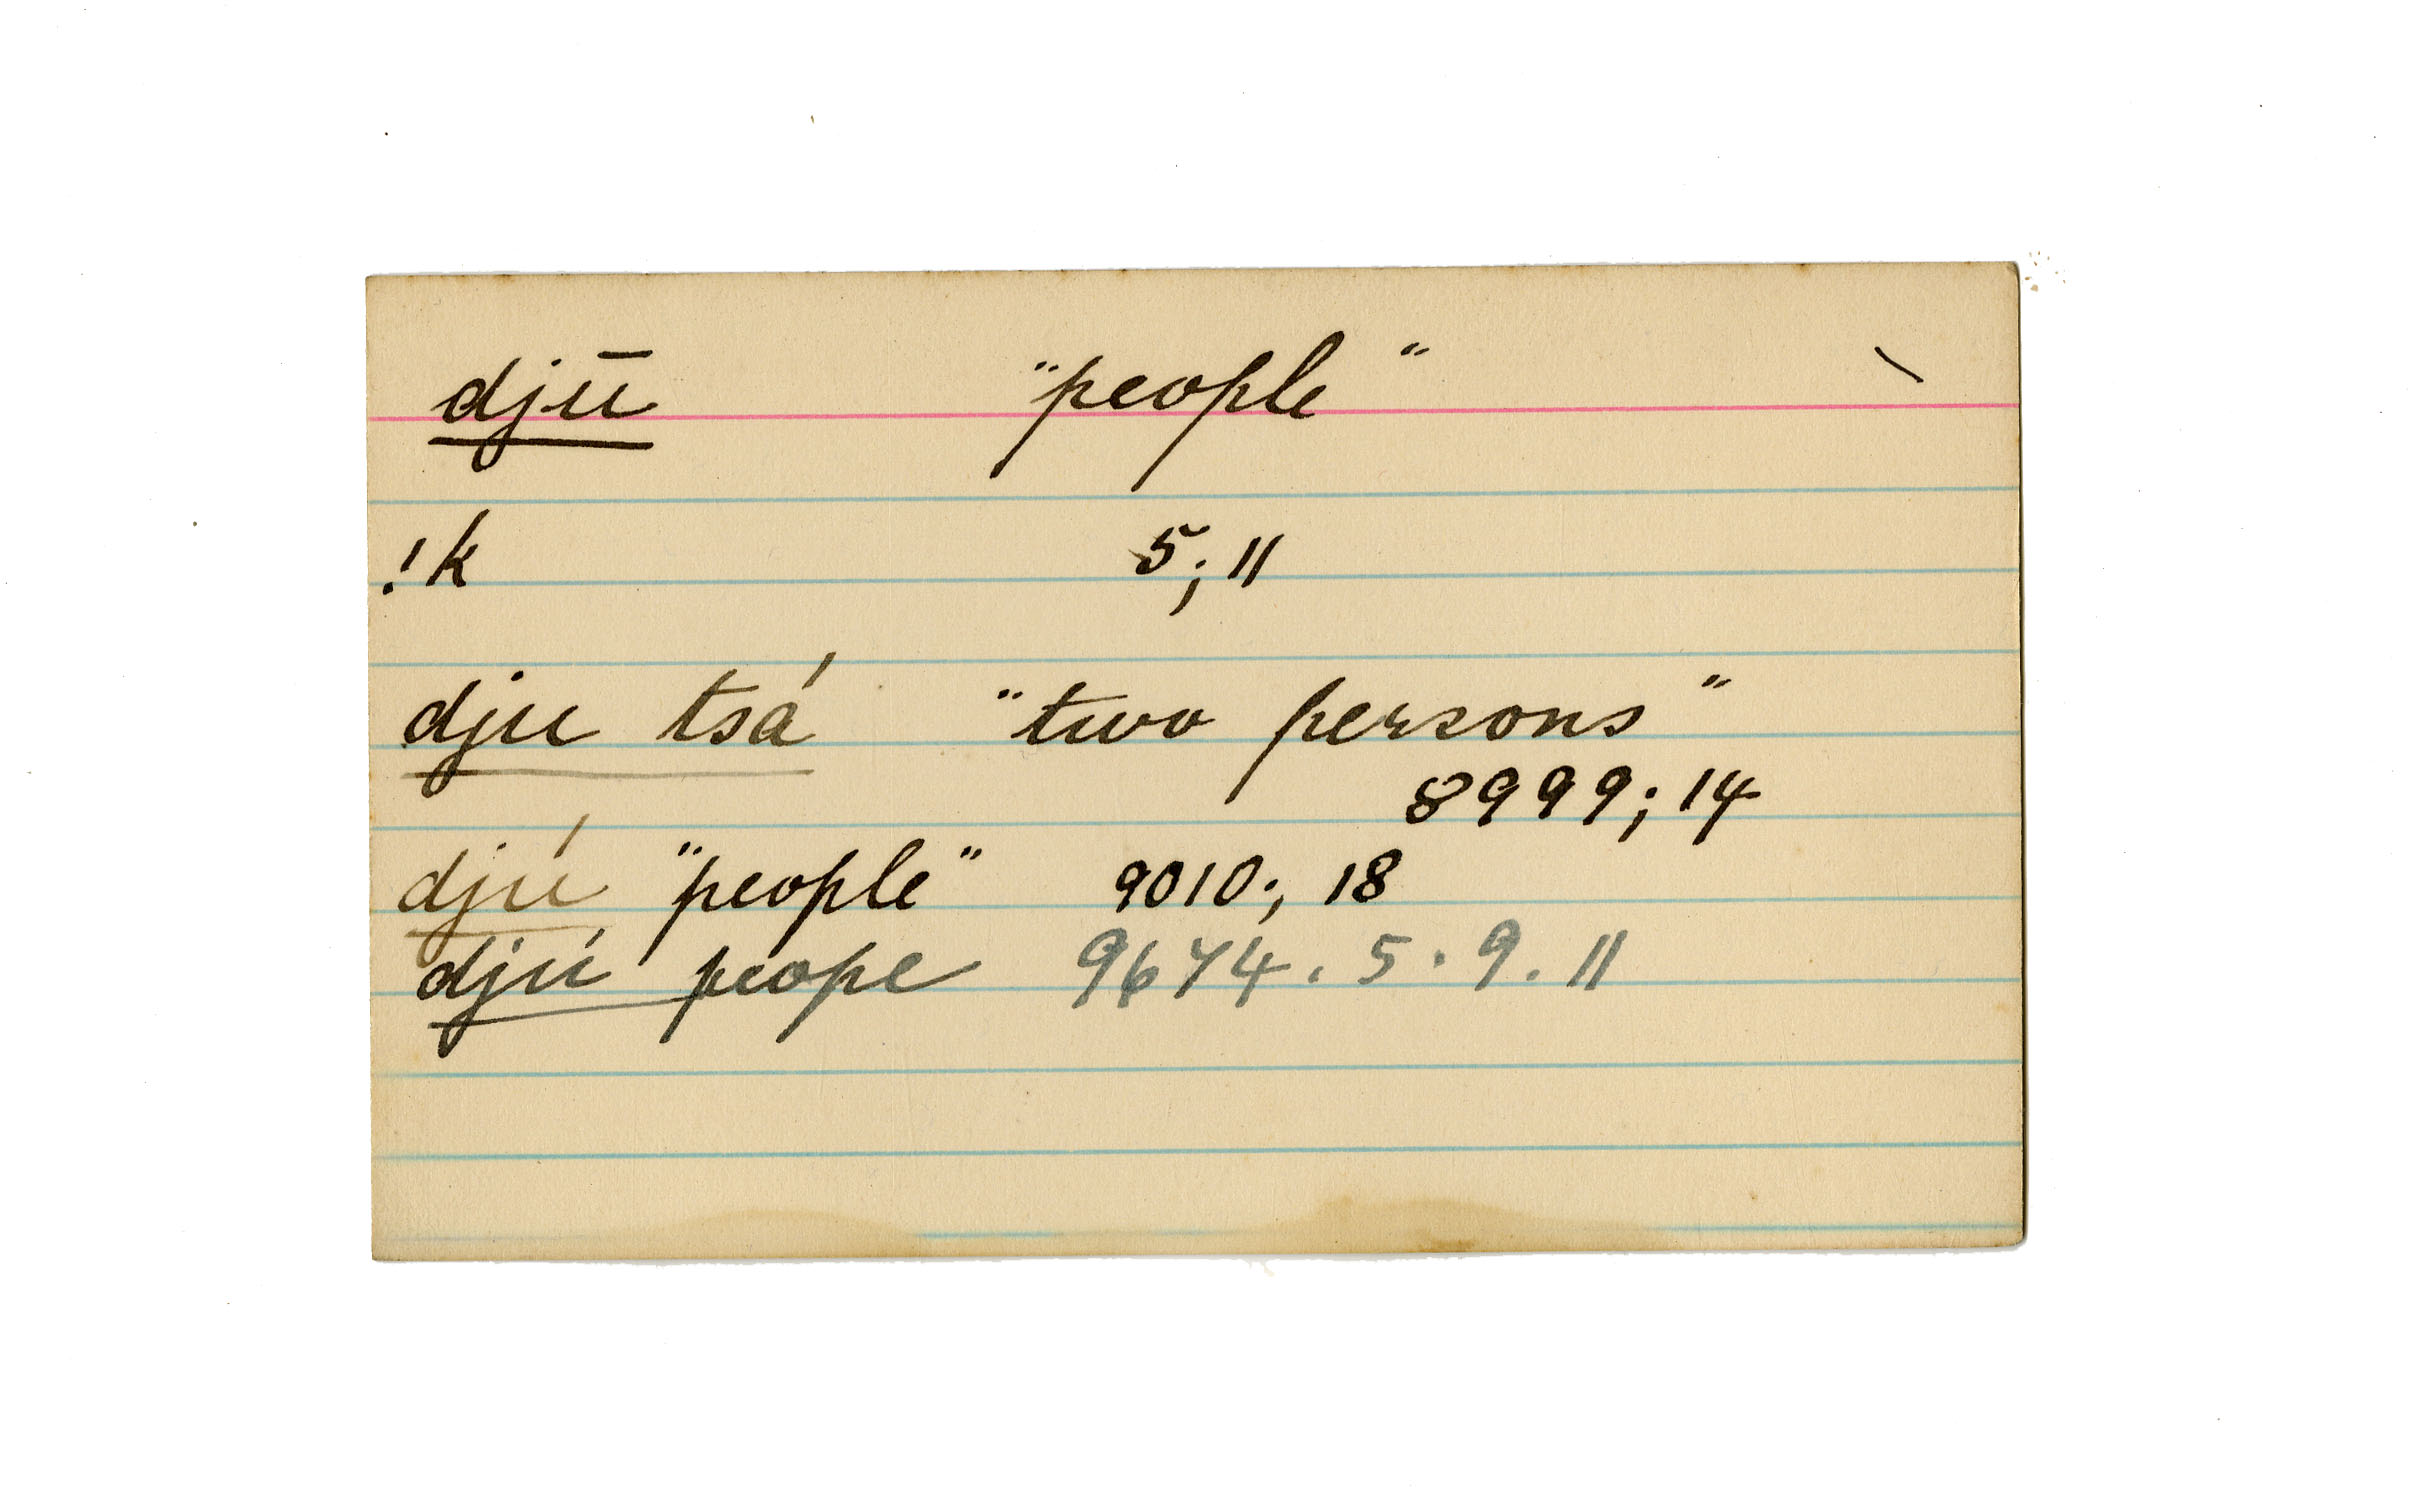 djū "people" \
!k 5; 11
dju tsá "two persons"
8999; 14
djú "people" 9010; 18
djú peope 9674. 5. 9. 11